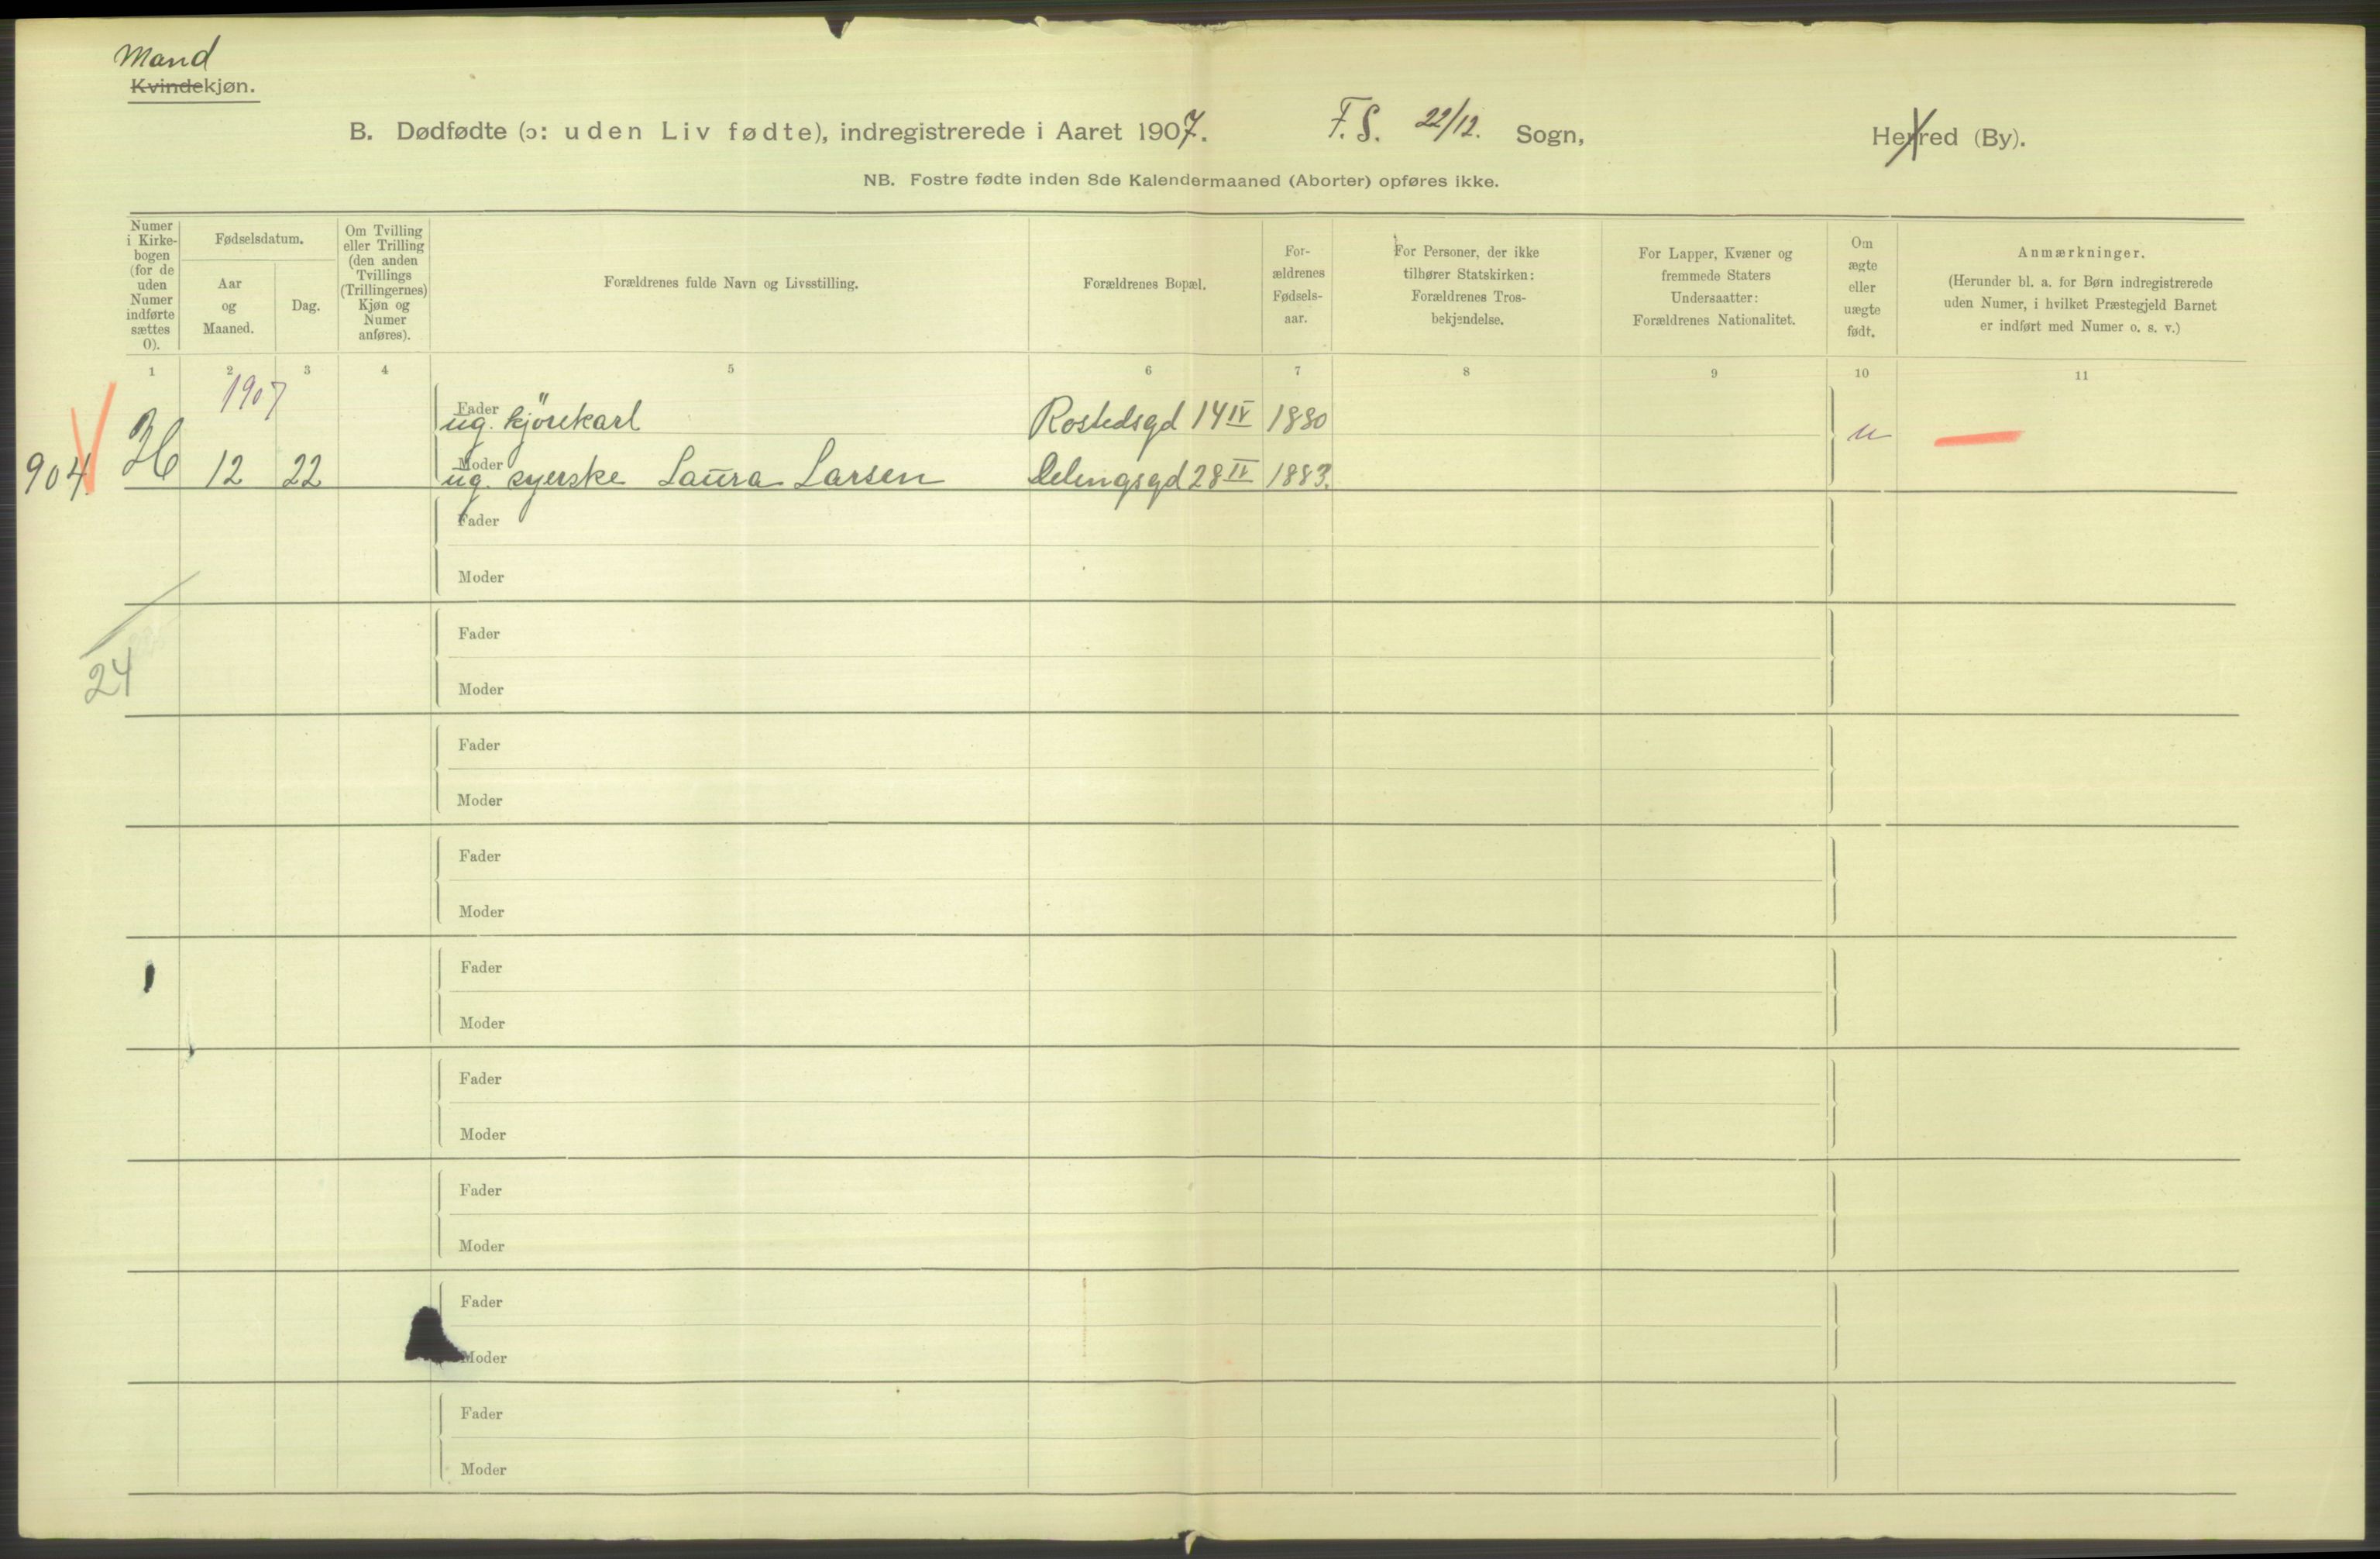 Mand
Kvindekjøn.
B. Dødfødte (ɔ: uden Liv fødte), indregistrerede i Aaret 1907. F. S. 22/12. Sogn, Herred (By).
NB. Fostre fødte inden 8de Kalendermaaned (Aborter) opføres ikke.
Numer
i Kirke-
bogen
(for de
uden
Numer
indførte
sættes
0).
Fødselsdatum.
Aar
og
Maaned.
Dag.
Om Tvilling
eller Trilling
(den anden
Tvillings
(Trillingernes)
Kjøn og
Numer
anføres).
Forældrenes fulde Navn og Livsstilling.
Forældrenes Bopæl.
For-
ældrenes
Fødsels-
aar.
For Personer, der ikke
tilhører Statskirken:
Forældrenes Tros-
bekjendelse.
For Lapper, Kvæner og
fremmede Staters
Undersaatter:
Forældrenes Nationalitet.
Om
ægte
eller
uægte
født.
Anmærkninger.
(Herunder bl. a. for Børn indregistrerede
uden Numer, i hvilket Præstegjeld Barnet
er indført med Numer o. s. v.)
1 2 3 4 5 6 7 8 9 10 11
1907
Fader
ug. kjörekarl Rostedsgd 14 IV 1880 u
Moder
904. 12 22 ug. syerske Laura Larsen Delingsgd 28 IV 1883.
Fader
Moder
Fader
24 Moder
Fader
Moder
Fader
Moder
Fader
Moder
Fader
Moder
Fader
Moder
Fader
Moder
Fader
Moder